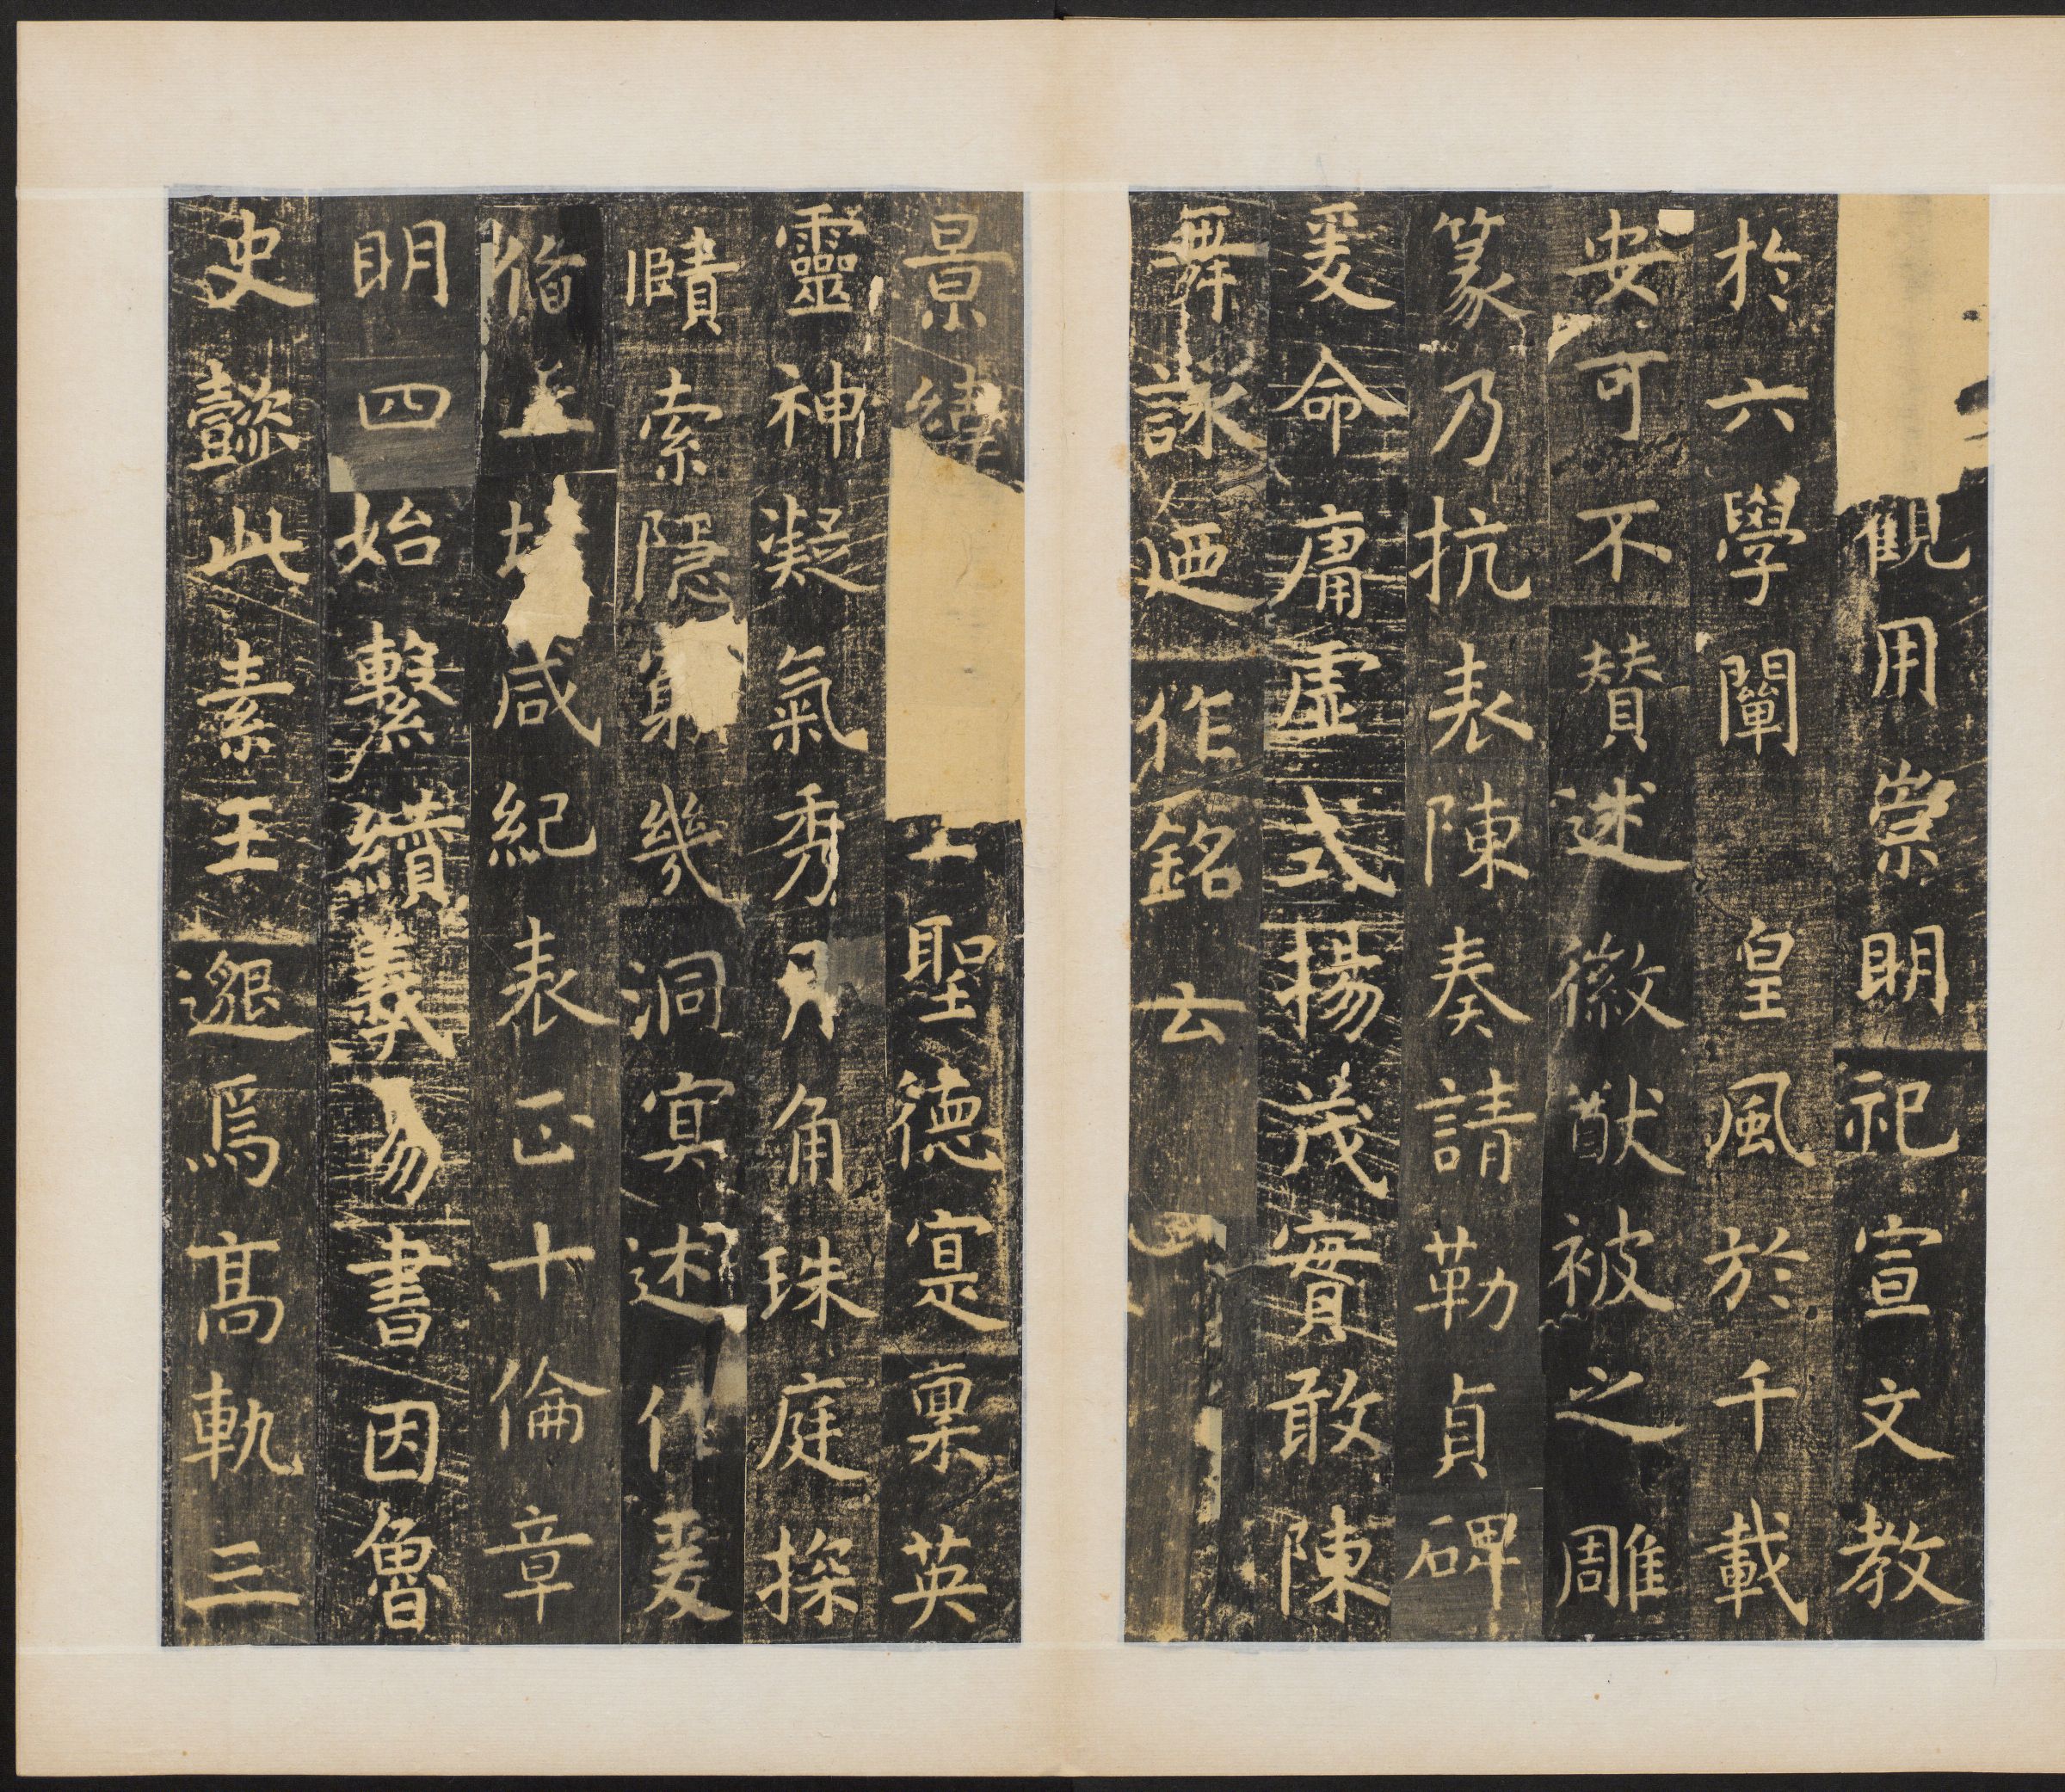 觀用崇明祀宣文教
於六學闡皇風於千載
安可不贊述徽猷被之雕
篆乃抗表陳奏請勒貞碑
爰命庸虛式揚茂實敢陳
舞詠迺作銘云
景緯
聖德寔稟英
靈神凝氣秀月角珠庭探
賾索隱窮幾洞冥述作爰
俻咸紀表正十倫章
明四始繫纘羲易書因魯
史懿此素王邈焉高軌三